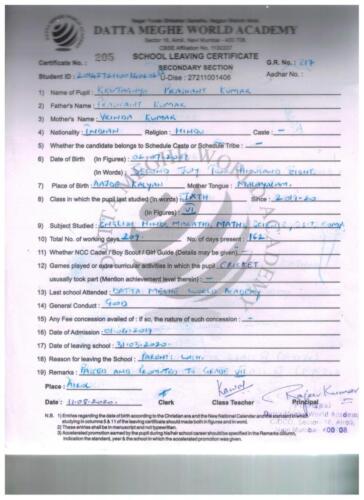 DATTA MEGHE WORLD ACADEMY
Sector 16, Airoli, Navi Mumbai - 400 708.
SCHOOL LEAVING CERTIFICATE
Certificate No. : 205 G.R. No. : 217
SECONDARY SECTION
Student ID : U-Dise : 27211001406 Aadhar No. :
1) Name of Pupil : PRASHANT KUMAR
2) Father's Name : PRASHANT KUMAR
3) Mother's Name : VRINDA KUMAR
4) Nationality : INDIAN Religion : HINDU Caste :
5) Whether the candidate belongs to Schedule Caste or Schedule Tribe :
6) Date of Birth (In Figures) :
(In Words) : SECOND JULY TWO THOUSAND EIGHT
7) Place of Birth KALYAN Mother Tongue : MALAYALAM
8) Class in which the pupil last studied (In words) : SIXTH Since : 2019-20
(In Figures) : VI
9) Subject Studied : ENGLISH HINDI, MARATHI, MATH,
10) Total No. of working days 209 No. of days present : 162
11) Whether NCC Cadet / Boy Scout / Girl Guide (Details may be given)
12) Games played or extra curricular activities in which the pupil CRICKET
usually took part (Mention achievement level therein) :
13) Last school Attended : DATTA MEGHE WORLD ACADEMY
14) General Conduct : GOOD
15) Any Fee concession availed of : If so, the nature of such concession :
16) Date of Admission : 2019
17) Date of leaving school : 31/03/2020
18) Reason for leaving the School : PARENT'S WISH.
19) Remarks : PASSED AND PROMOTED TO GRADE VII
Place : AIROLI
Date : 11-08-2020 Clerk Class Teacher Principal
N.B. 1) Entries regarding the date of birth according to the Christian era and the New National Calendar
studying in columns 5 & 11 of the leaving certificate should made both in figures and in word.
2) These entries shall be in manuscript and not typewritten.
3) Accelerated promotion earned by the pupil during his/her school career should be specified in the Remarks column,
indication the standard, year & the school in which the accelerated promotion was given.